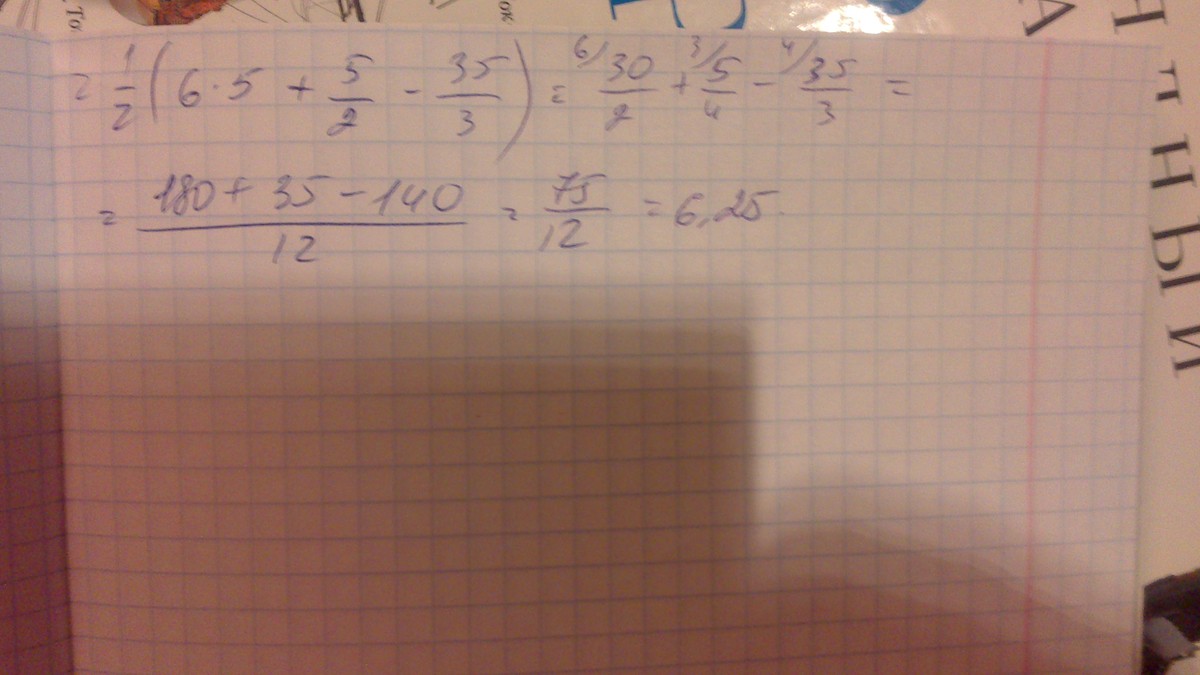 = 1/2 (6·5 + 5/2 - 35/3) = 6/ 30/2 + 3/ 5/4 - 4/ 35/3 =
= (180 + 35 - 140)/12 = 75/12 = 6,25.
НЫЙ